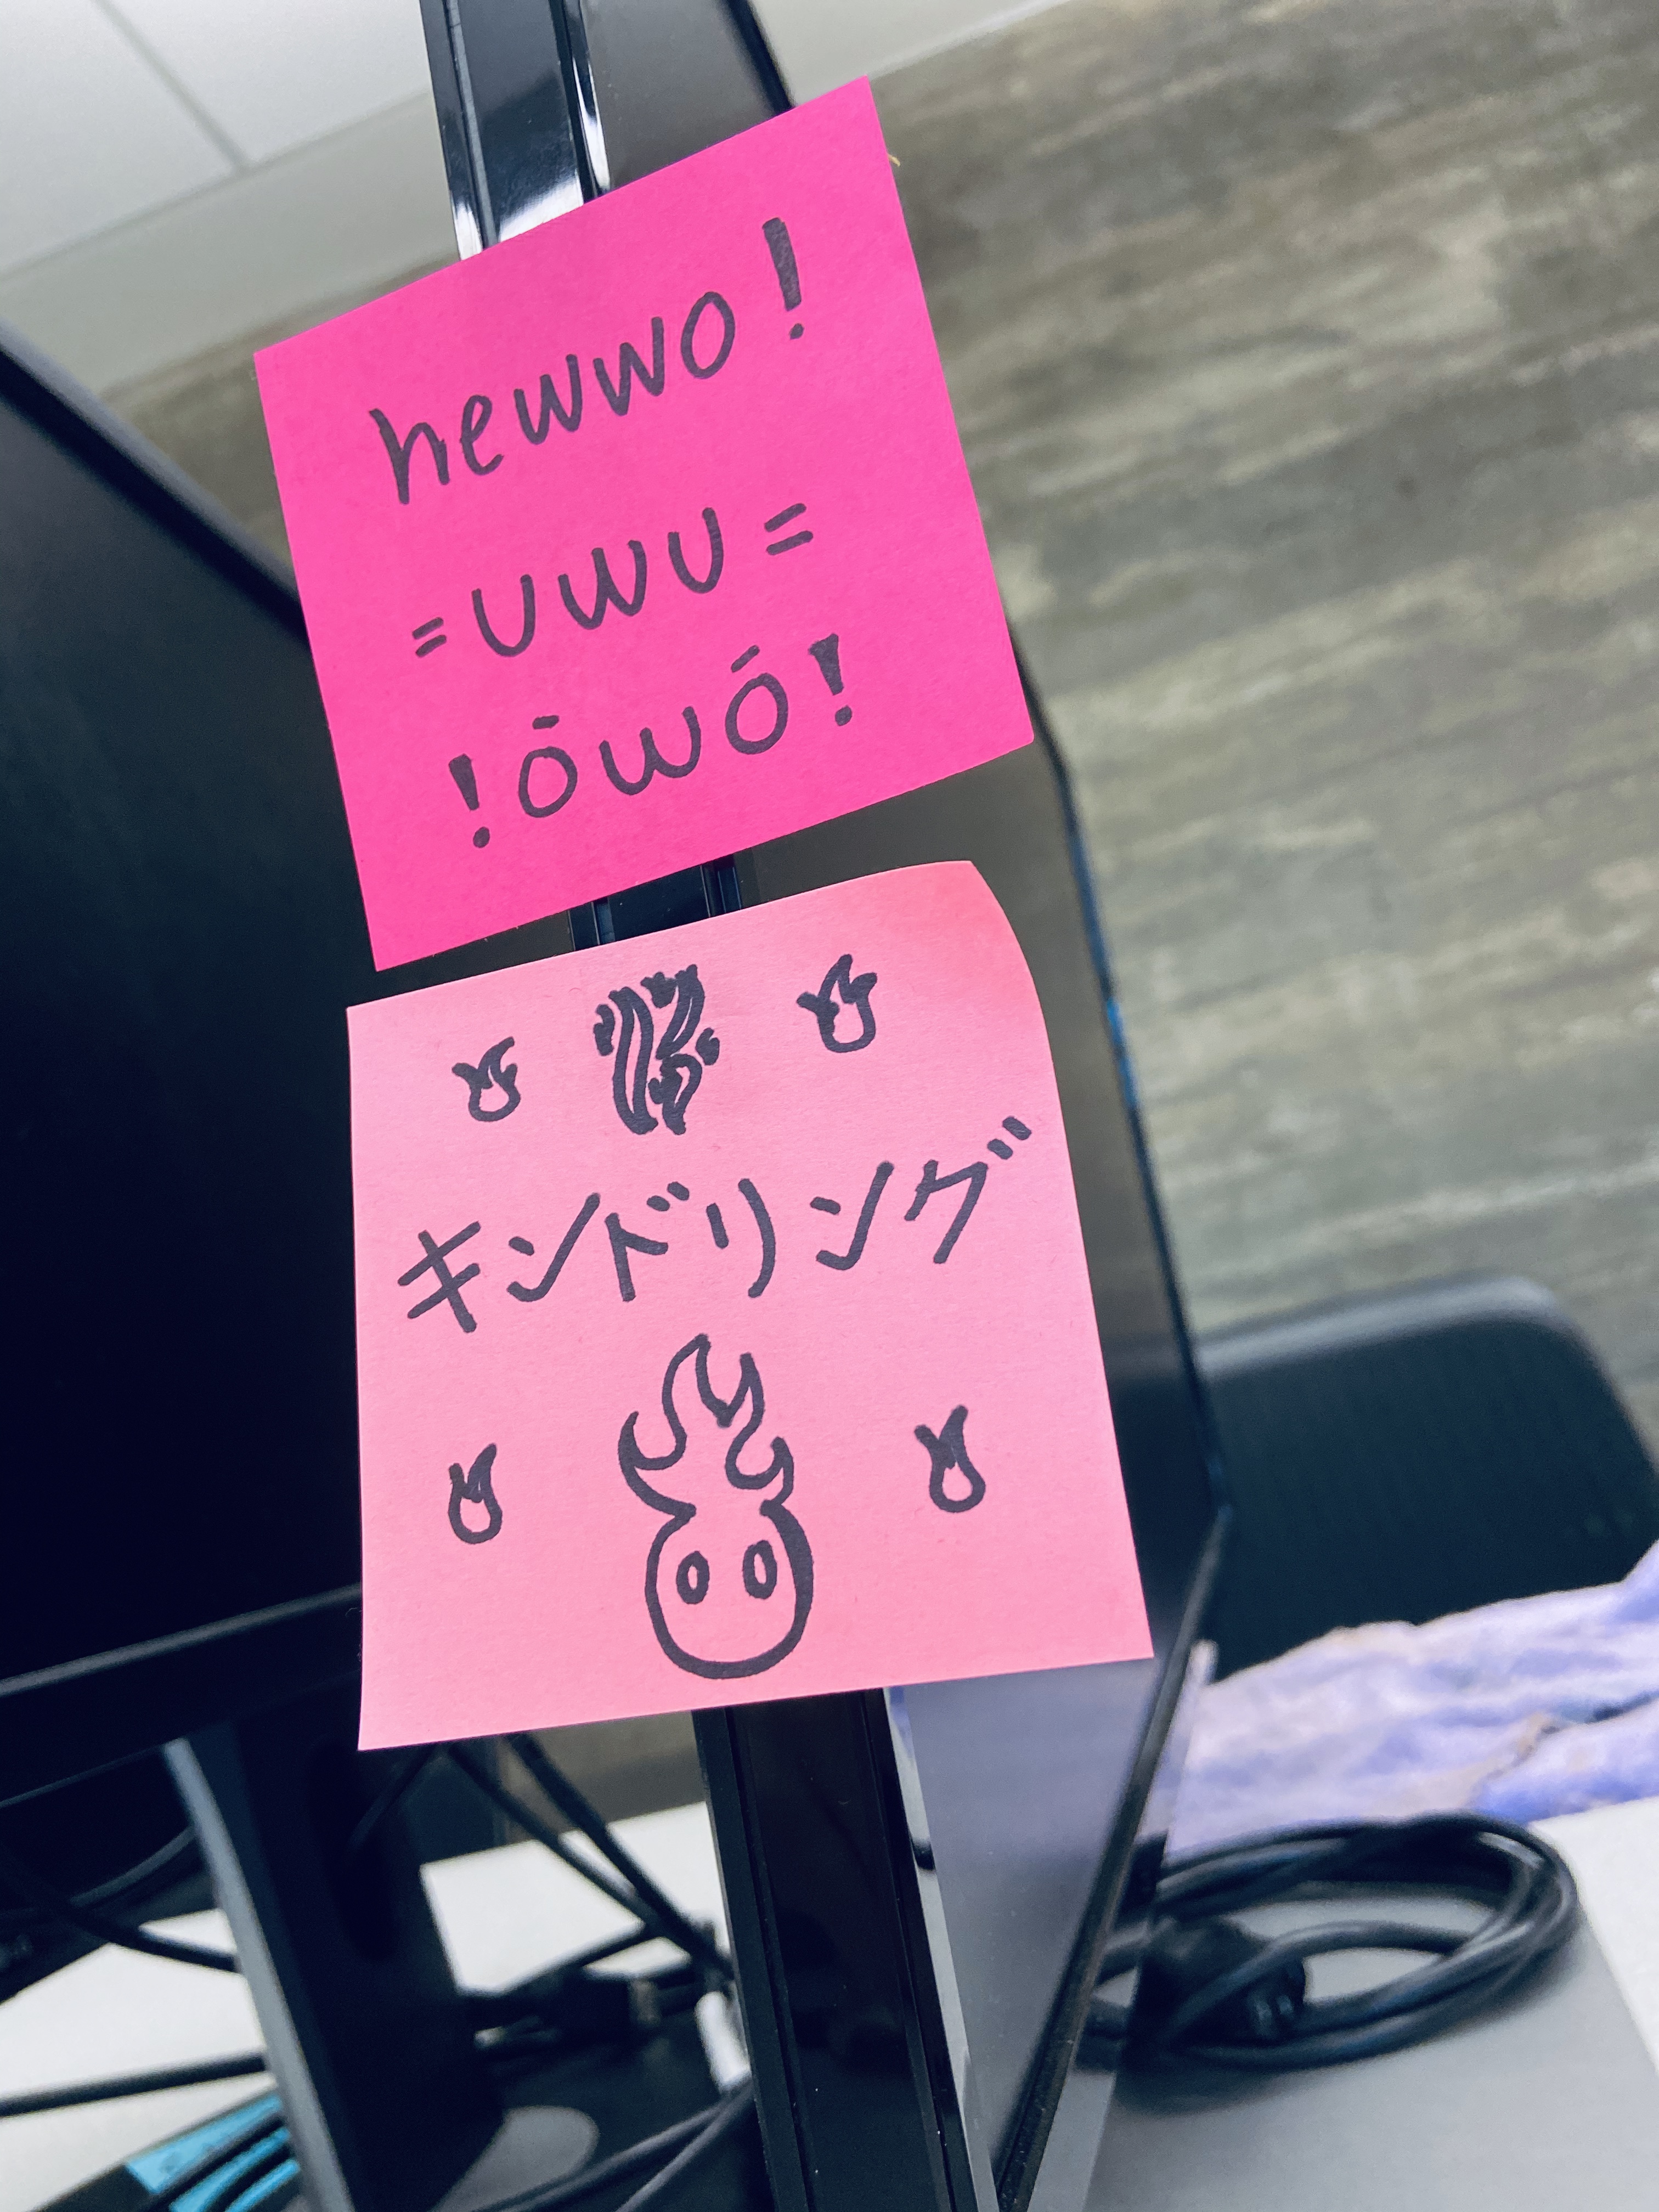 hewwo!
=UwU=
!ōwó!
キンドリング